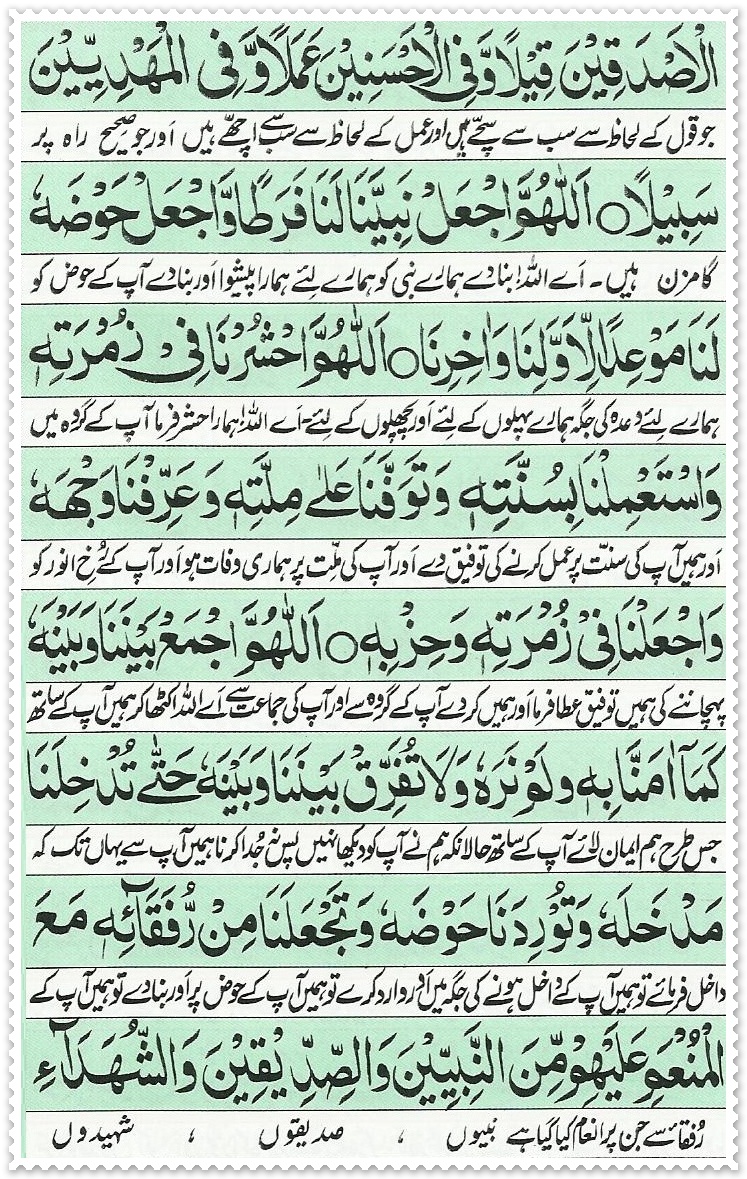 الْاَصْدَقِيْنَ قِيْلًا وَّفِى الْاَحْسَنِيْنَ عَمَلًا وَّ فِى الْمَهْدِيِّيْنَ
جو قول کے لحاظ سے سب سے سچے ہیں اور عمل کے لحاظ سے سب سے اچھے ہیں اَور جو صحیح راہ پر
سَبِيْلًا ○ اَللّٰهُمَّ اجْعَلْ نَبِيَّنَا لَنَا فَرَطًا وَّاجْعَلْ حَوْضَهٗ
گامزن ہیں۔ اَے اللہ! بنا دے ہمارے نبی کو ہمارے لئے ہمارا پیشوا اَور بنا دے آپ کے حوض کو
لَنَا مَوْعِدًا لِّاَوَّلِنَا وَاٰخِرِنَا ○ اَللّٰهُمَّ احْشُرْنَا فِىْ زُمْرَتِهٖ
ہمارے لئے وعدہ کی جگہ ہمارے پہلوں کے لئے اَور پچھلوں کے لئے۔ اَے اللہ! ہمارا حشر فرما آپ کے گروہ میں
وَاسْتَعْمِلْنَا بِسُنَّتِهٖ وَتَوَفَّنَا عَلٰى مِلَّتِهٖ وَعَرِّفْنَا وَجْهَهٗ
اَور ہمیں آپ کی سنت پر عمل کرنے کی توفیق دے اَور آپ کی مِلّت پر ہماری وفات ہو اَور آپ کے رُخِ انور کو
وَاجْعَلْنَا فِىْ زُمْرَتِهٖ وَحِزْبِهٖ ○ اَللّٰهُمَّ اجْمَعْ بَيْنَنَا وَبَيْنَهٗ
پہچاننے کی ہمیں توفیق عطا فرما اَور ہمیں کر دے آپ کے گروہ سے اور آپ کی جماعت سے اَے اللہ اکٹھا کر ہمیں آپ کے ساتھ
كَمَآ اٰمَنَّا بِهٖ وَلَمْ نَرَهٗ وَلَا تُفَرِّقْ بَيْنَنَا وَبَيْنَهٗ حَتّٰى تُدْخِلَنَا
جس طرح ہم ایمان لائے آپ کے ساتھ حالانکہ ہم نے آپ کو دیکھا نہیں پس نہ جُدا کرنا ہمیں آپ سے یہاں تک کہ
مَدْخَلَهٗ وَتُوْرِدَنَا حَوْضَهٗ وَتَجْعَلَنَا مِنْ رُّفَقَآئِهٖ مَعَ
داخل فرمائے تو ہمیں آپ کے داخل ہونے کی جگہ میں اَور وارد کرے تو ہمیں آپ کے حوض پر اَور بنا دے تو ہمیں آپ کے
الْمُنْعَمِ عَلَيْهِمْ مِّنَ النَّبِيّٖنَ وَالصِّدِّيْقِيْنَ وَالشُّهَدَآءِ
رُفقا سے جن پر انعام کیا گیا ہے نبیوں ، صدیقوں ، شہیدوں